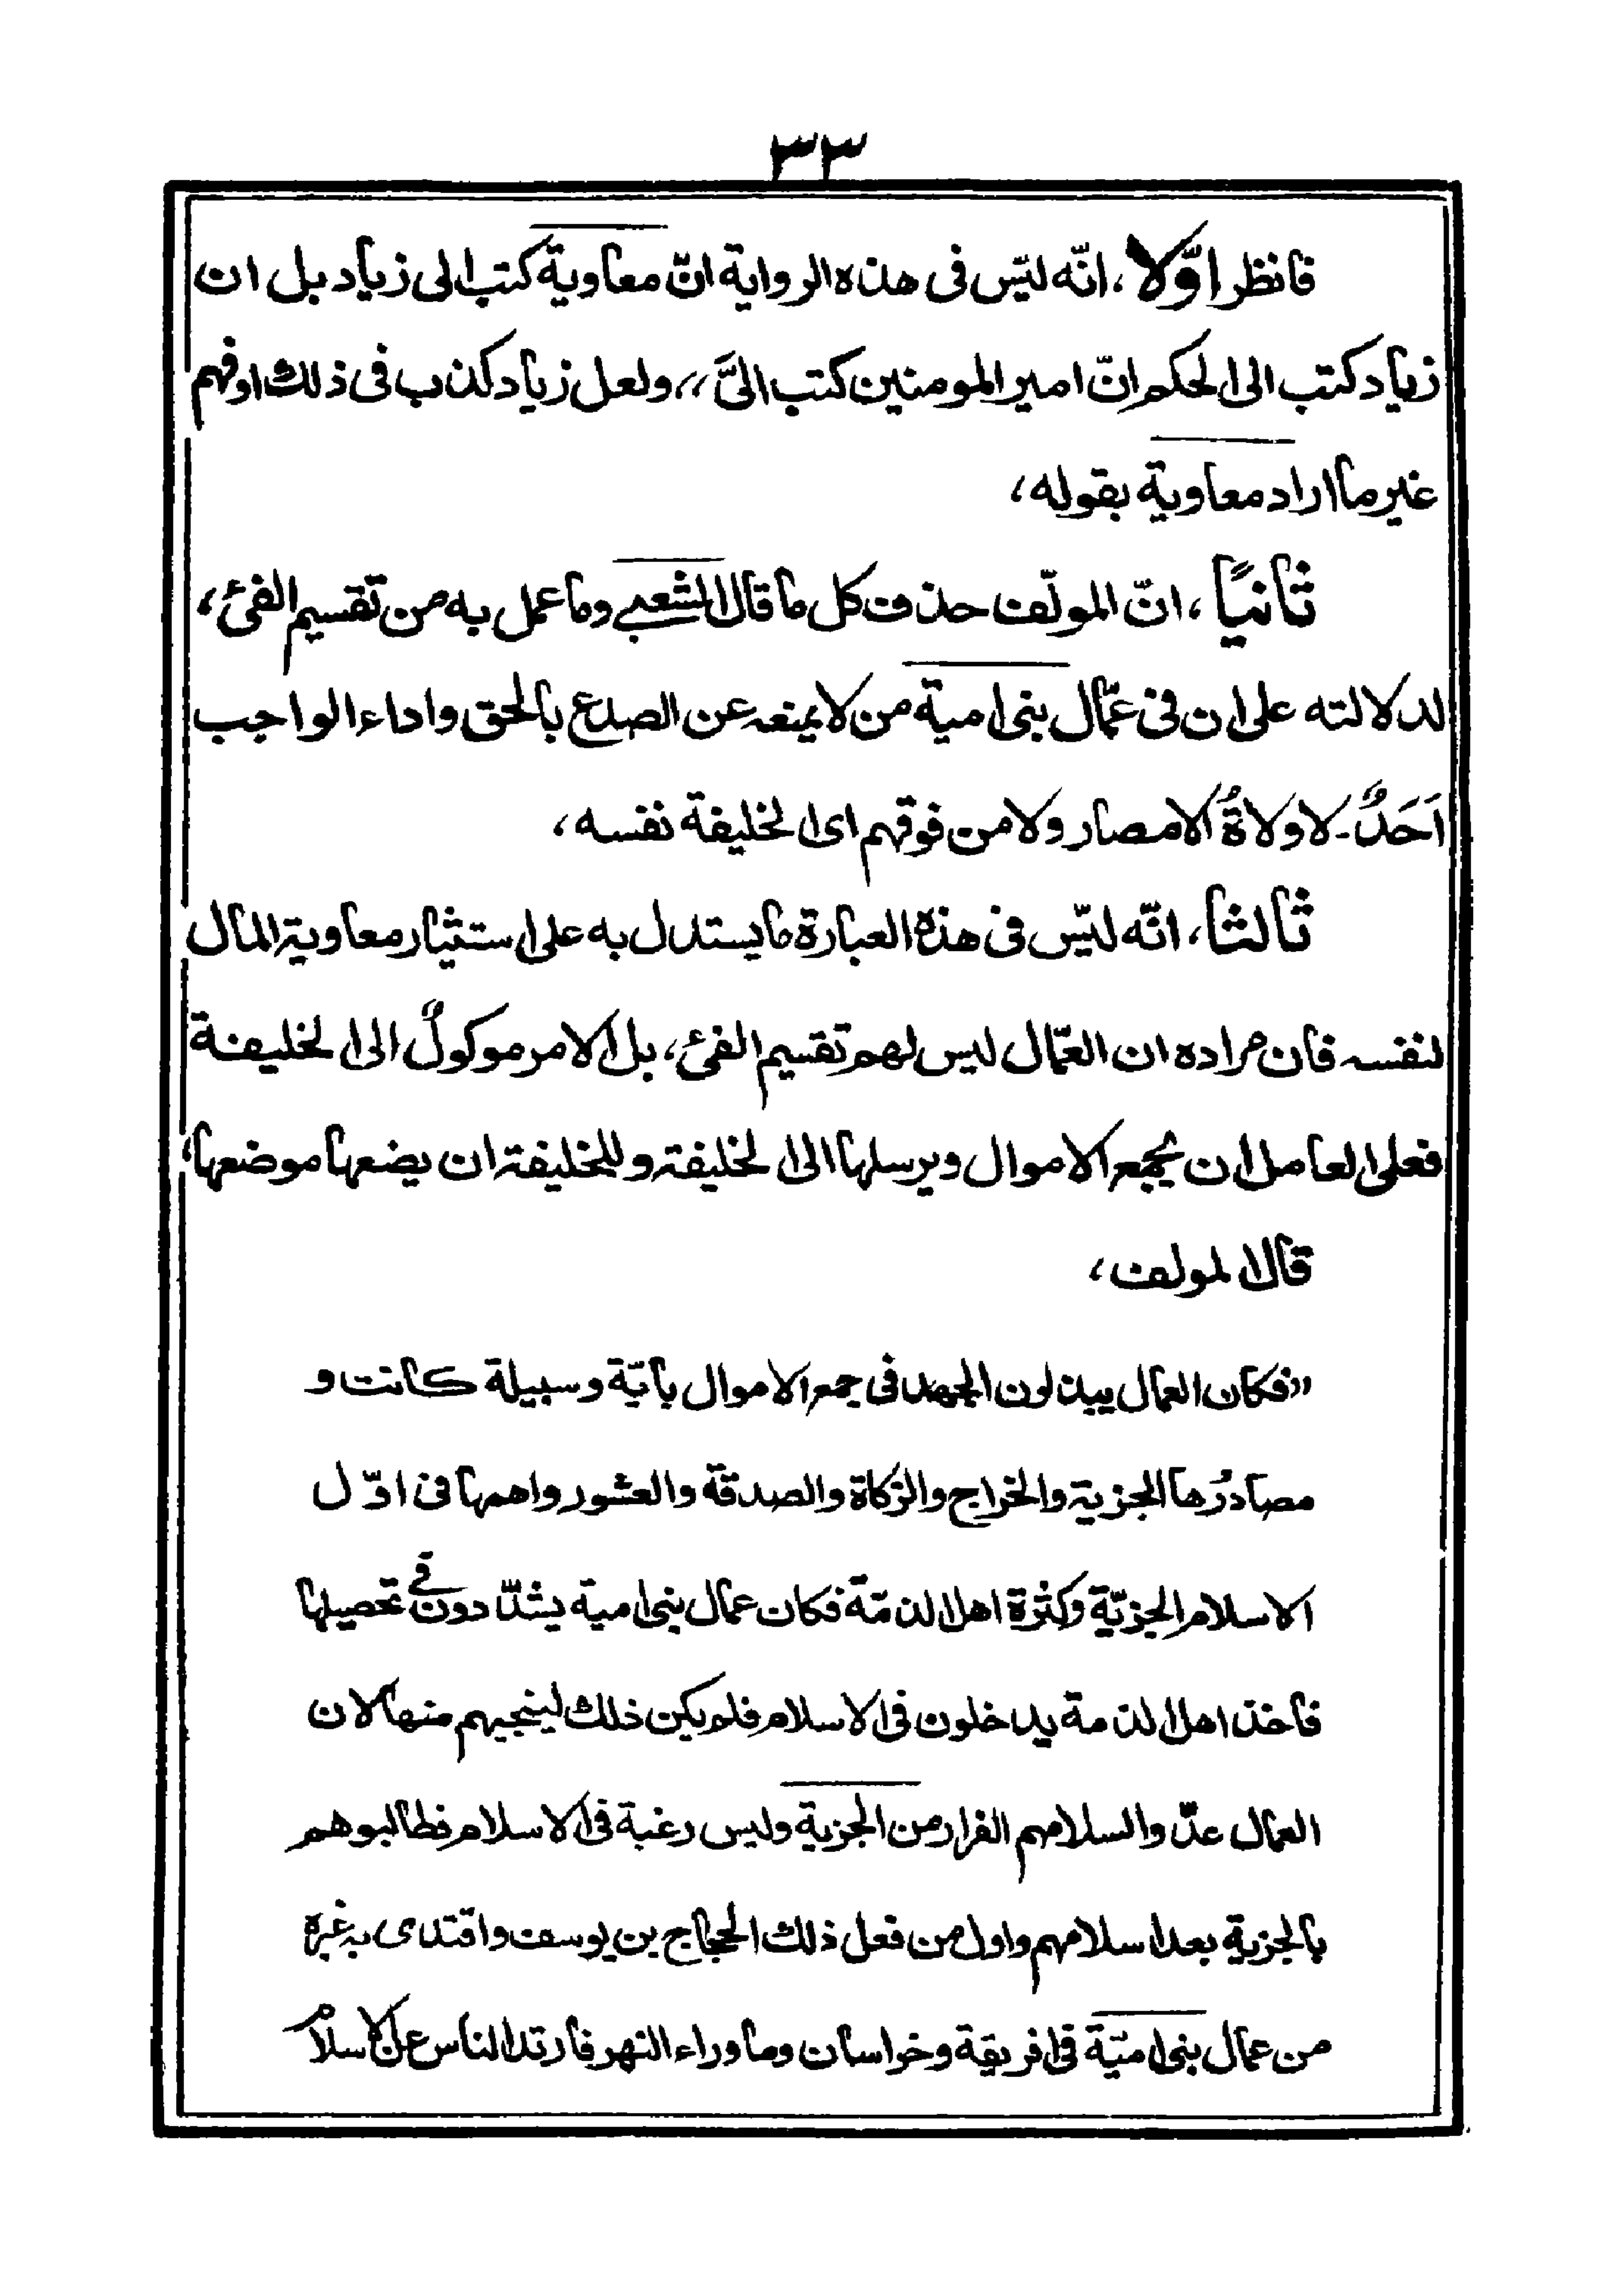 ٣٣
فانظر اوّلا، انّه ليس فى هذه الرواية انّ معاوية كتب الى زياد بل ان
زياد كتب الى الحكم انّ امير المومنين كتب الىَّ،، ولعل زياد كذب فى ذلك او فهم
غير ما اراد معاوية بقوله،
ثانيًا، انّ المولّف حذف كل ما قال الشعبى وما عمل به من تقسيم الفئ،
لدلالته على ان فى عمّال بنى امية من لا يمنعه عن الصدع بالحق واداء الواجب
اَحَدٌ- لا ولاةُ الامصار ولا من فوقهم اى الخليفة نفسه،
ثالثا، انّه ليس فى هذه العبارة ما يستدل به على استيثار معاوية المال
لنفسه فان مراده ان العمّال ليس لهم تقسيم الفئ، بل الامر موكولٌ الى الخليفة
فعلى العامل ان يجمع الاموال ويرسلها الى الخليفة وللخليفة ان يضعها موضعها،
قال المولف،
،،فكان العمال يبذلون الجهد فى جمع الاموال بايّة وسبيلة كانت و
مصادرُها الجزية والخراج والزكاة والصدقة والعشور واهمها فى اوّل
الاسلام الجزيّة وكثرة اهل الذمّة فكان عمال بنى امية يشدّدون فى تحصيلها
فاخذ اهل الذمة يدخلون فى الاسلام فلم يكن ذلك لينجيهم منها لان
العمال عدّوا اسلامهم الفرار من الجزية وليس رغبة فى الاسلام فطالبوهم
بالجزية بعد اسلامهم واول من فعل ذلك الحجاج بن يوسف واقتدى به غيره
من عمال بنى اميّة فى افريقة وخراسان وما وراء النهر فارتد الناس عن الاسلام